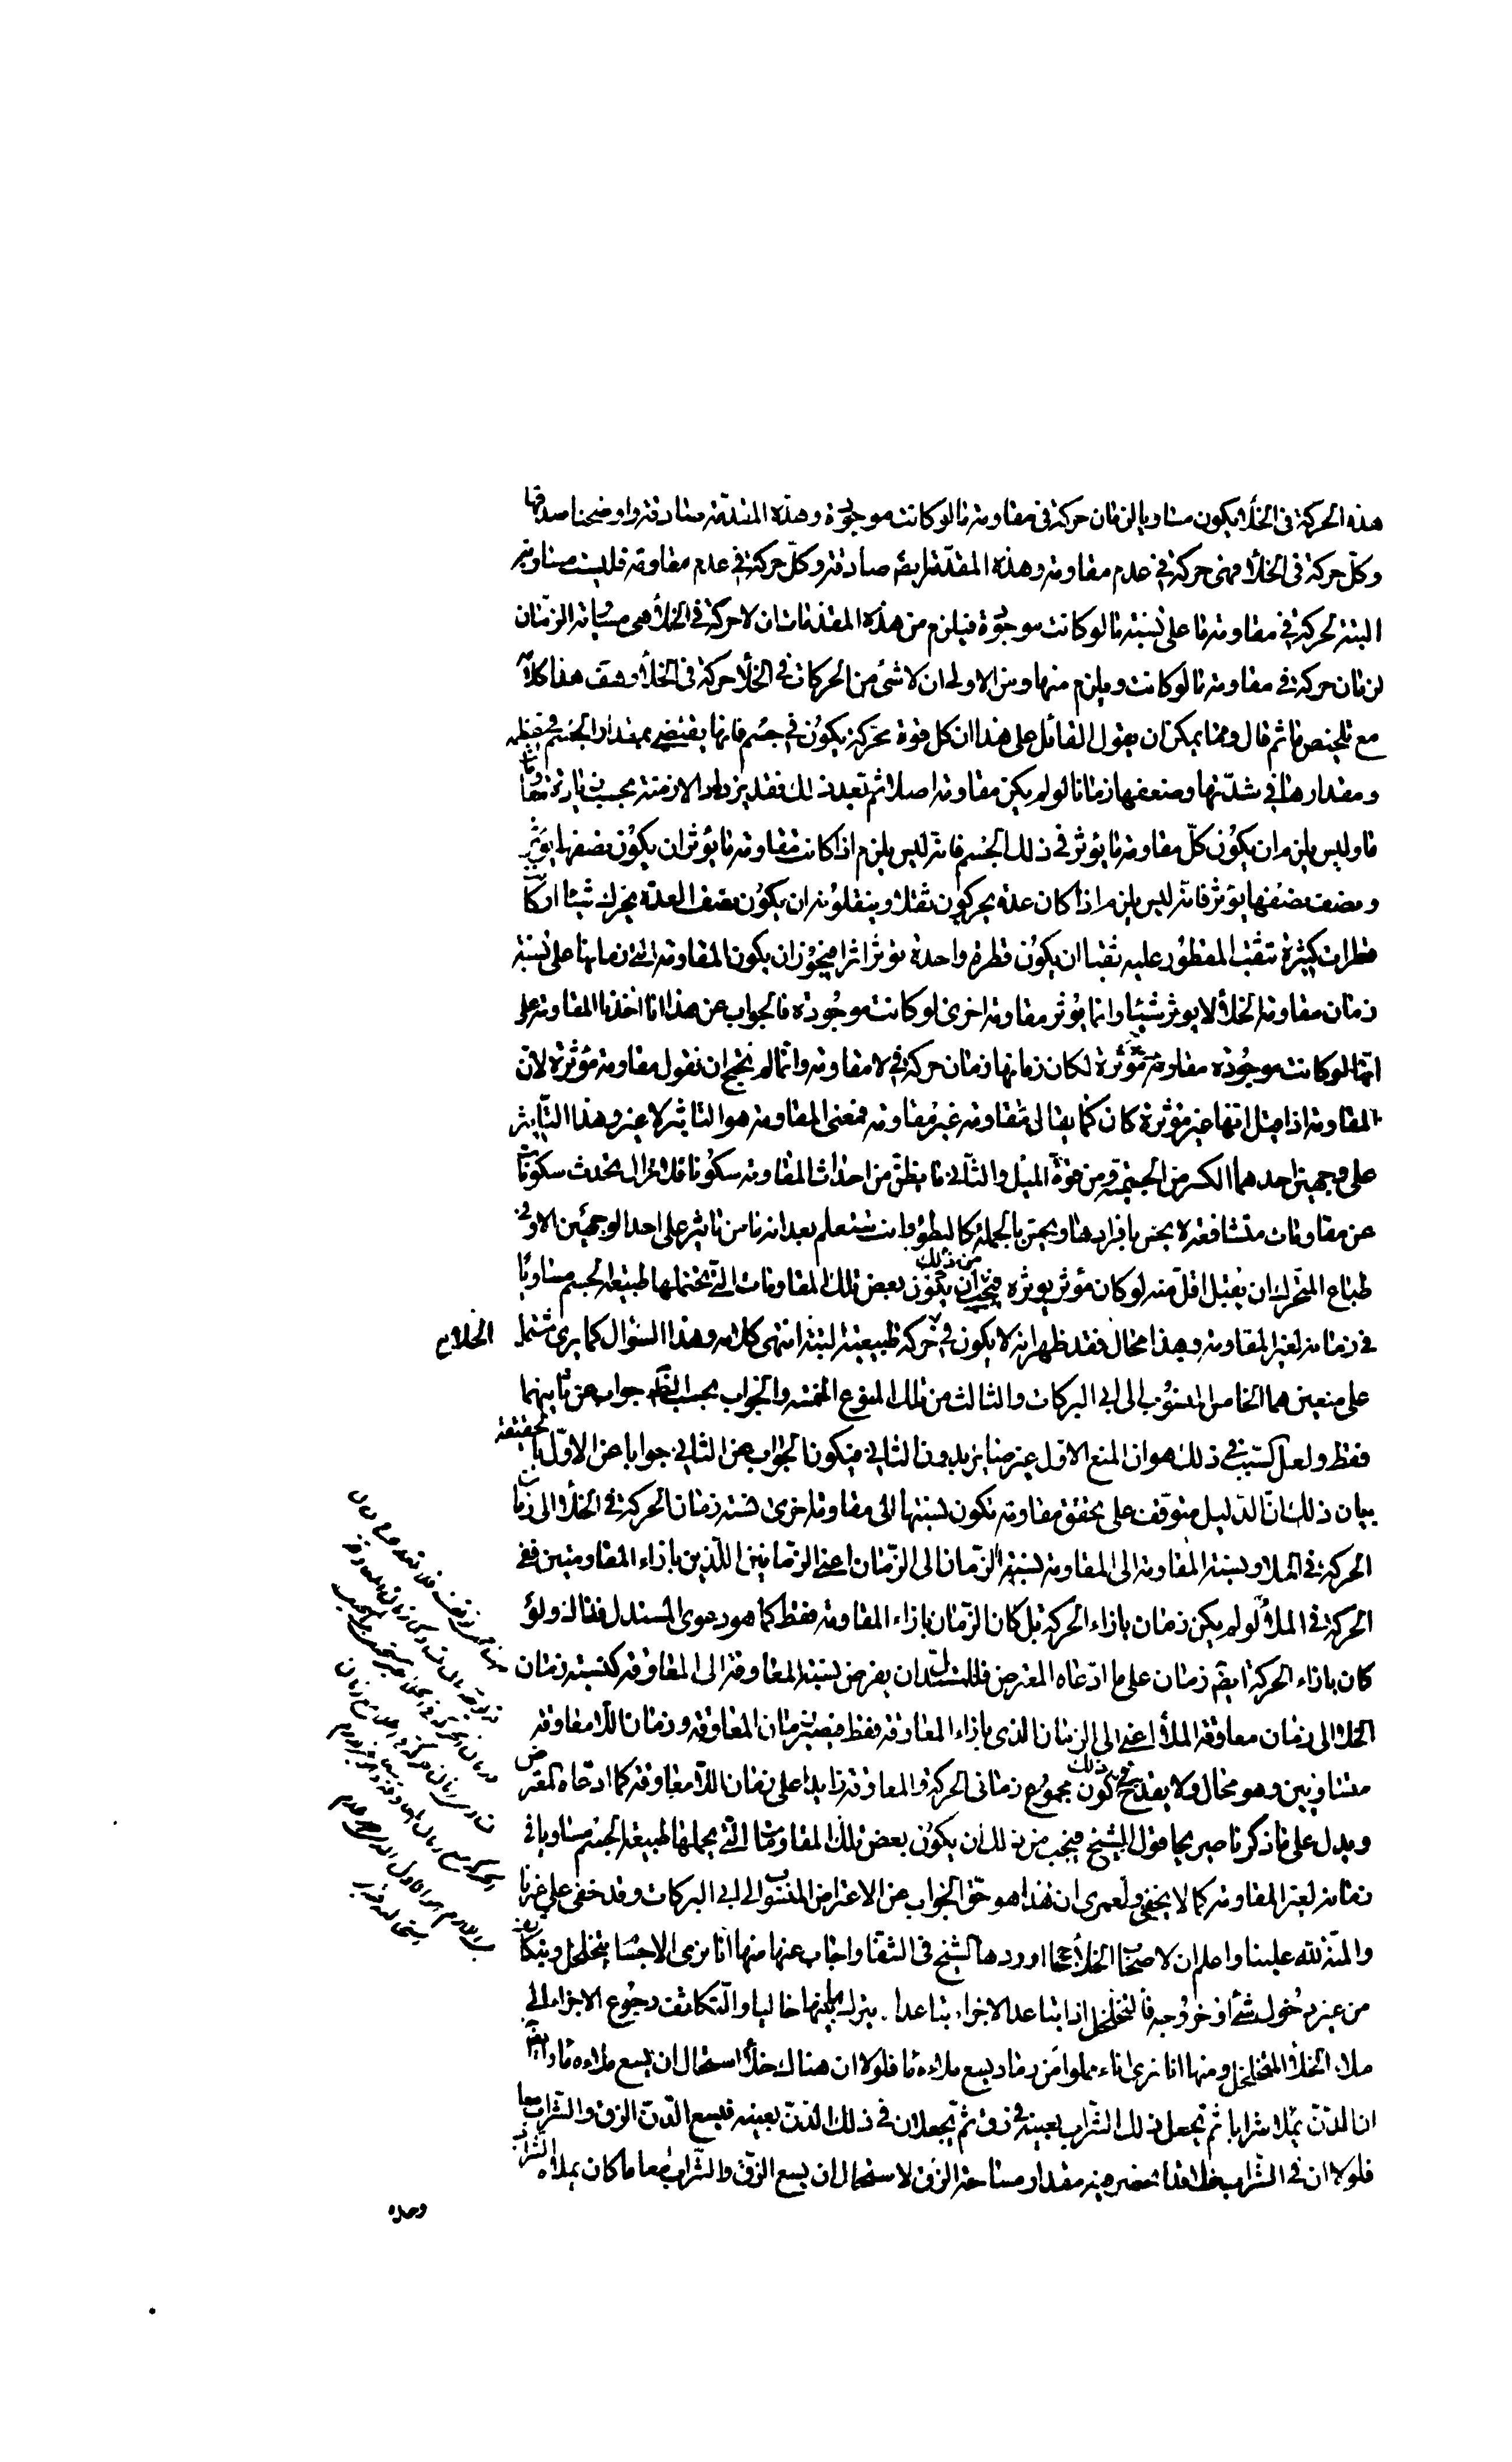 هذه الحركة فى الخلأ يكون مساويا لزمان حركة فى مقاومة ما لو كانت موجودة وهذه المقدمة صادقة واوضحنا صدقها
وكل حركة فى الخلأ فهى حركة فى عدم مقاومة وهذه المقدمة ايضا صادقة وكل حركة فى عدم مقاومة فليست مساوية
البتة لحركة فى مقاومة ما على نسبة ما لو كانت موجودة فيلزم من هذه المقدمات ان لا حركة فى الخلأ هى مساوية الزمان
لزمان حركة فى مقاومة ما لو كانت ويلزم منها ومن الاولى ان لا شئ من الحركات فى الخلأ حركة فى الخلأ وهف هذا كلامه
مع تلخيص ما ثم قال ومما يمكن ان يقول القائل على هذا ان كل قوة محركة يكون فى جسم فانها يقتضى بمقدار الجسم فى عظمه
ومقدارها فى شدتها وضعفها زمانا لو لم يكن مقاومة اصلا ثم بعد ذلك فقد يزداد الازمنة بحسب زيادة مقاومات
ما وليس يلزم ان يكون كل مقاومة ما يؤثر فى ذلك الجسم فانه ليس يلزم اذا كانت مقاومة ما يؤثر ان يكون نصفها يؤثر
ونصف نصفها يؤثر فانه ليس يلزم اذا كان عدة يحركون ثقلا وينقلونه ان يكون نصف العدة يحرك شيئا او كانت
قطرات كثيرة تثقب المقطور عليه ثقبا ان يكون قطرة واحدة تؤثر اثرا فيجوز ان يكون المقاومة التى زمانها على نسبة
زمان مقاومة الخلأ لا يوثر شيئا وانما يؤثر مقاومة اخرى لو كانت موجودة فالجواب عن هذا انا اخذنا المقاومة على
انها لو كانت موجودة مقاومة مؤثرة لكان زمانها زمان حركة فى لا مقاومة وانما لم نحتج ان نقول مقاومة مؤثرة لان
المقاومة اذا قيل انها غير مؤثرة كان كما يقال مقاومة غير مقاومة فمعنى المقاومة هو التاثير لا غير وهذا التاثير
على وجهين احدهما الكسر من الحمية ومن قوة الميل والثانى ما يظن من احداث المقاومة سكونا فلا تزال تحدث سكونات
عن مقاومات متشافعة لا يحس بافرادها ويحس بالجملة كالبطؤ وانت ستعلم بعد انه ما من تاثير على احد الوجهين الا وفى
طباع المتحرك ان يقبل اقل منه لو كان مؤثر يوثره فيجب من ذلك ان يكون بعض تلك المقاومات التى يحتملها طبيعة الجسم مساويا
فى زمانه لغير المقاومة وهذا محال فقد ظهر انه لا يكون فى حركة طبيعية البتة انتهى كلامه وهذا السؤال كما يرى مشتمل
الخلأ
على منعين هما الخامس المنسوب الى ابى البركات والثالث من تلك المنوع الخمسة والجواب بحسب الظاهر جواب عن ثانيهما
فقط ولعل السبب فى ذلك هو ان المنع الاول غير ضائر بدون الثانى فيكون الجواب عن الثانى جوابا عن الاول بالحقيقة
بيان ذلك ان الدليل متوقف على تحقق مقاومة تكون نسبتها الى مقاومة اخرى نسبة زمان الحركة فى الخلأ الى زمان
الحركة فى الملأ ونسبة المقاومة الى المقاومة نسبة الزمان الى الزمان اعنى الزمانين اللذين بازاء المقاومتين ففى
الحركة فى الملأ لو لم يكن زمان بازاء الحركة بل كان الزمان بازاء المقاومة فقط كما هو دعوى المستدل فذاك ولو
كان بازاء الحركة ايضا زمان على ما ادعاه المعترض فللمستدل ان يفرض نسبة المعاوقة الى المعاوقة كنسبة زمان
الخلأ الى زمان معاوقة الملأ اعنى الى الزمان الذى بازاء المعاوقة فقط فيصير زمان المعاوقة وزمان اللامعاوقة
متساويين وهو محال ولا يقدح فى ذلك كون مجموع زمانى الحركة والمعاوقة زايدا على زمان اللامعاوقة كما ادعاه المعترض
ويدل على ما ذكرنا صريحا قول الشيخ فيجب من ذلك ان يكون بعض تلك المقاومات التى يحملها طبيعة الجسم مساويا فى
زمانه لغير المقاومة كما لا يخفى ولعمرى ان هذا هو حق الجواب عن الاعتراض المنسوب الى ابى البركات وقد خفى على غيرنا
والمنة لله علينا واعلم ان لاصحاب الخلأ حججا اوردها الشيخ فى الشفا واجاب عنها منها انا نرى الاجسام يتخلخل ويتكاثف
من غير دخول شئ او خروجه فالتخلخل اذا تباعد الاجزاء تباعدا يترك بينها خاليا والتكاثف رجوع الاجزاء الى
ملاء الخلأ المتخلخل ومنها انا نرى اناء مملوا من رماد يسع ملاءه ماء فلولا ان هناك خلأ استحال ان يسع ملاءه ماء وايضا
ان الدن يملأ شرابا ثم يجعل ذلك الشراب بعينه فى زق ثم يجعلان فى ذلك الدن بعينه فيسع الدن الزق والشراب معا
فلولا ان فى الشراب خلأ قد انحصر فيه مقدار مساحة الزق لاستحال ان يسع الزق والشراب معا ما كان يملأه الشراب
وحده